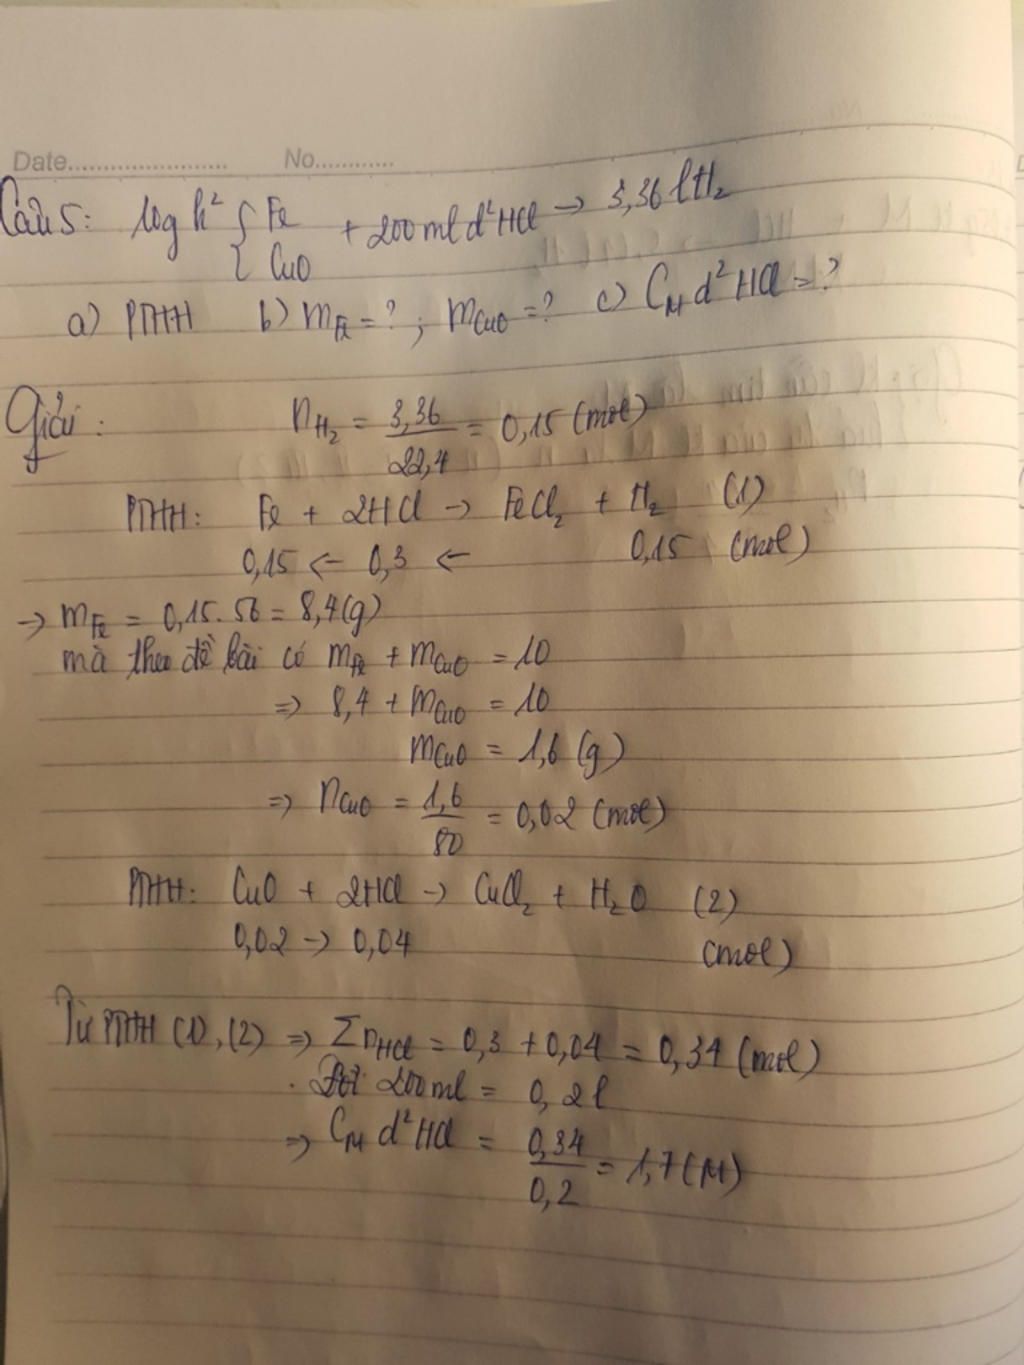 Date...................... No............
Câu 5: 10g h² { Fe CuO + 200ml d²HCl → 3,36 lH₂
a) PTHH b) mFe = ? ; mCuO = ? c) CM d²HCl = ?
Giải:
nH₂ = 3,36/22,4 = 0,15 (mol)
PTHH: Fe + 2HCl → FeCl₂ + H₂ (1)
0,15 ← 0,3 ← 0,15 (mol)
→ mFe = 0,15.56 = 8,4(g)
mà theo đề bài có mFe + mCuO = 10
⇒ 8,4 + mCuO = 10
mCuO = 1,6 (g)
⇒ nCuO = 1,6/80 = 0,02 (mol)
PTHH: CuO + 2HCl → CuCl₂ + H₂O (2)
0,02 → 0,04 (mol)
Từ PTHH (1), (2) ⇒ ΣnHCl = 0,3 + 0,04 = 0,34 (mol)
. Đổi 200ml = 0,2l
⇒ CM d²HCl = 0,34/0,2 = 1,7(M)